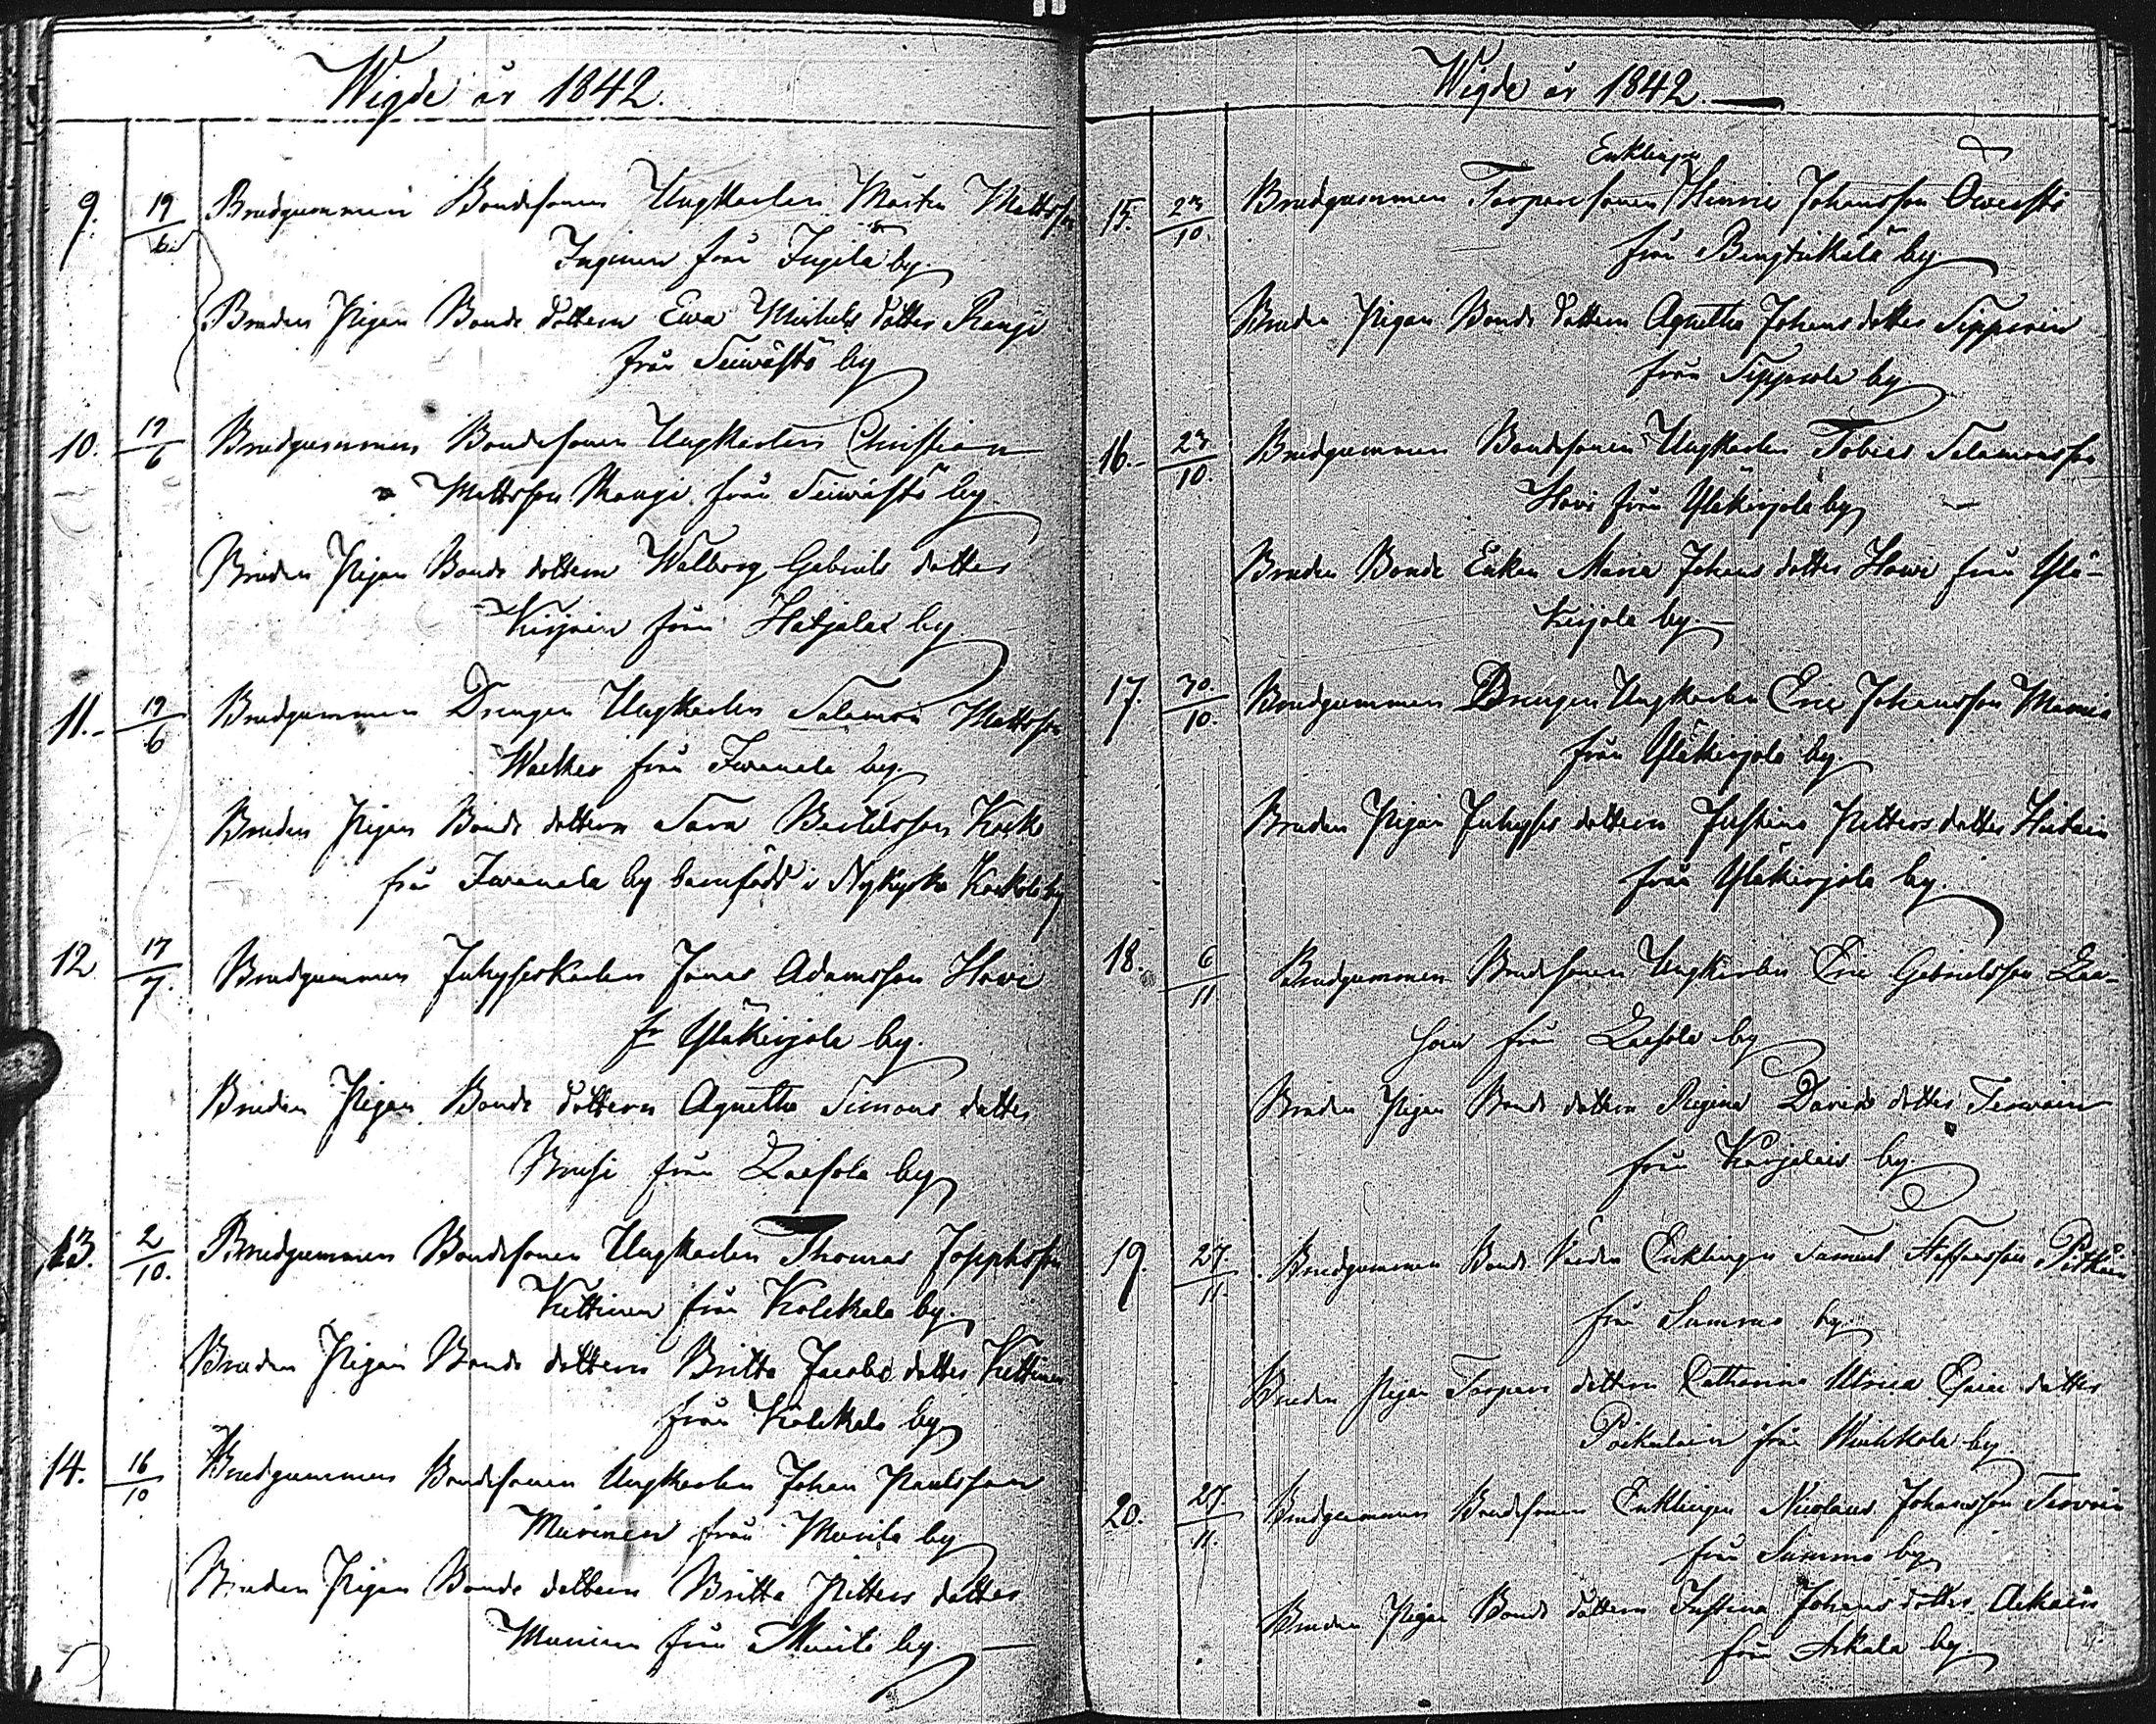 Wigde år 1842.
9. 19/6 Brudgummen Bondesonen Ungkarlen Mårten Mattsson
Inginen från Ingilä by
Bruden Pigan Bonde dottern Ewa Michels dotter Kaugi
från Seiwästö by
10. 19/6 Brudgummen Bondesonen Ungkarlen Christian
Mattsson Kaugi från Seiwästö by
Bruden Pigan Bonde dottern Walborg Gabriels dotter
Kirjain från Hatjalax by
11. 19/6 Brudgummen Drengen Ungkarlen Salomon Mattsson
från Iwanala by
Bruden Pigan Bonde dottern Sara Bertilsson Kosko
från Iwanala by barnfödd i Nykyrko Koskola by
12. 17/7. Brudgummen Inhyseskarlen Jonas Adamsson Howi
fr Yläkirjola by.
Bruden Pigan Bonde dottern Agnetha Simons dotter
från Laasola by
13. 2/10. Brudgummen Bondesonen Ungkarlen Thomas Josephsson
Kettinen från Kolckala by.
Bruden Pigan Bonde dottern Britta Jacobs dotter Kettinen
från Kolckala by
14. 16/10 Brudgummen Bondesonen Ungkarlen Johan Paulsson
Murinen från Murila by
Bruden Pigan Bonde dottern Britta Petters dotter
Murinen från Murila by.
Wigde år 1842.
Enklingen
15. 23/10. Brudgummen Torparesonen Henric Johansson
från by
Bruden Pigan Bonde dottern Agnetha Johans dotter Sipponen
från Sippola by
16. 23/10. Brudgummen Bondesonen Ungkarlen Tobias Salomonsson
Howi från Yläkirjola by
Bruden Bonde Enkan Maria Johans dotter Howi från Ylä-
kirjola by.
17. 30./10. Brudgummen Drengen Ungkarlen Eric Johansson
från Yläkirjola by.
Bruden Pigan Inhyses dottern Justina Petters dotter
från Yläkirjola by.
18. 6/11 Brudgummen Bondesonen Ungkarlen Eric Gabrielsson Laa-
son från Laasola by
Bruden Pigan Bonde dottern Regina Davids dotter Terwain
från Karjalais by
19. 27./11. Brudgummen Bonde Enklingen Samuel Staffansson Pitkäin
från Summa by
Bruden Pigan Torpare dottern Catharina Ulrica Esaias dotter
från by
20. 27/11. Brudgummen Bondesonen Enklingen Nicolaus Johansson Terwain
från Summa by
Bruden Pigan Bonde dottern Justina Johans dotter Askain
från Askala by.